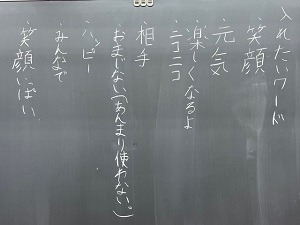 入れたいワード
・笑顔
・元気
・楽しくなるよ
・ニコニコ
・相手
おまじない(あんまり使わない。)
・ハッピー
・みんなで
・笑顔いっぱい